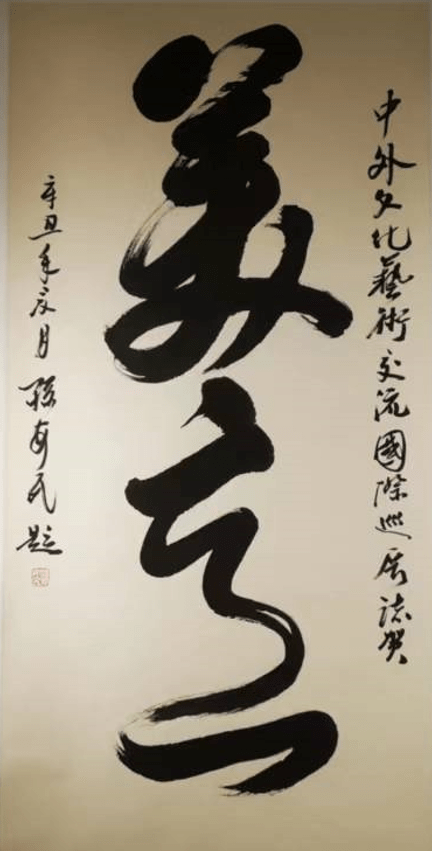 中外文化藝術交流國際巡展誌賀
美意
辛丑年辰月
孫安民題